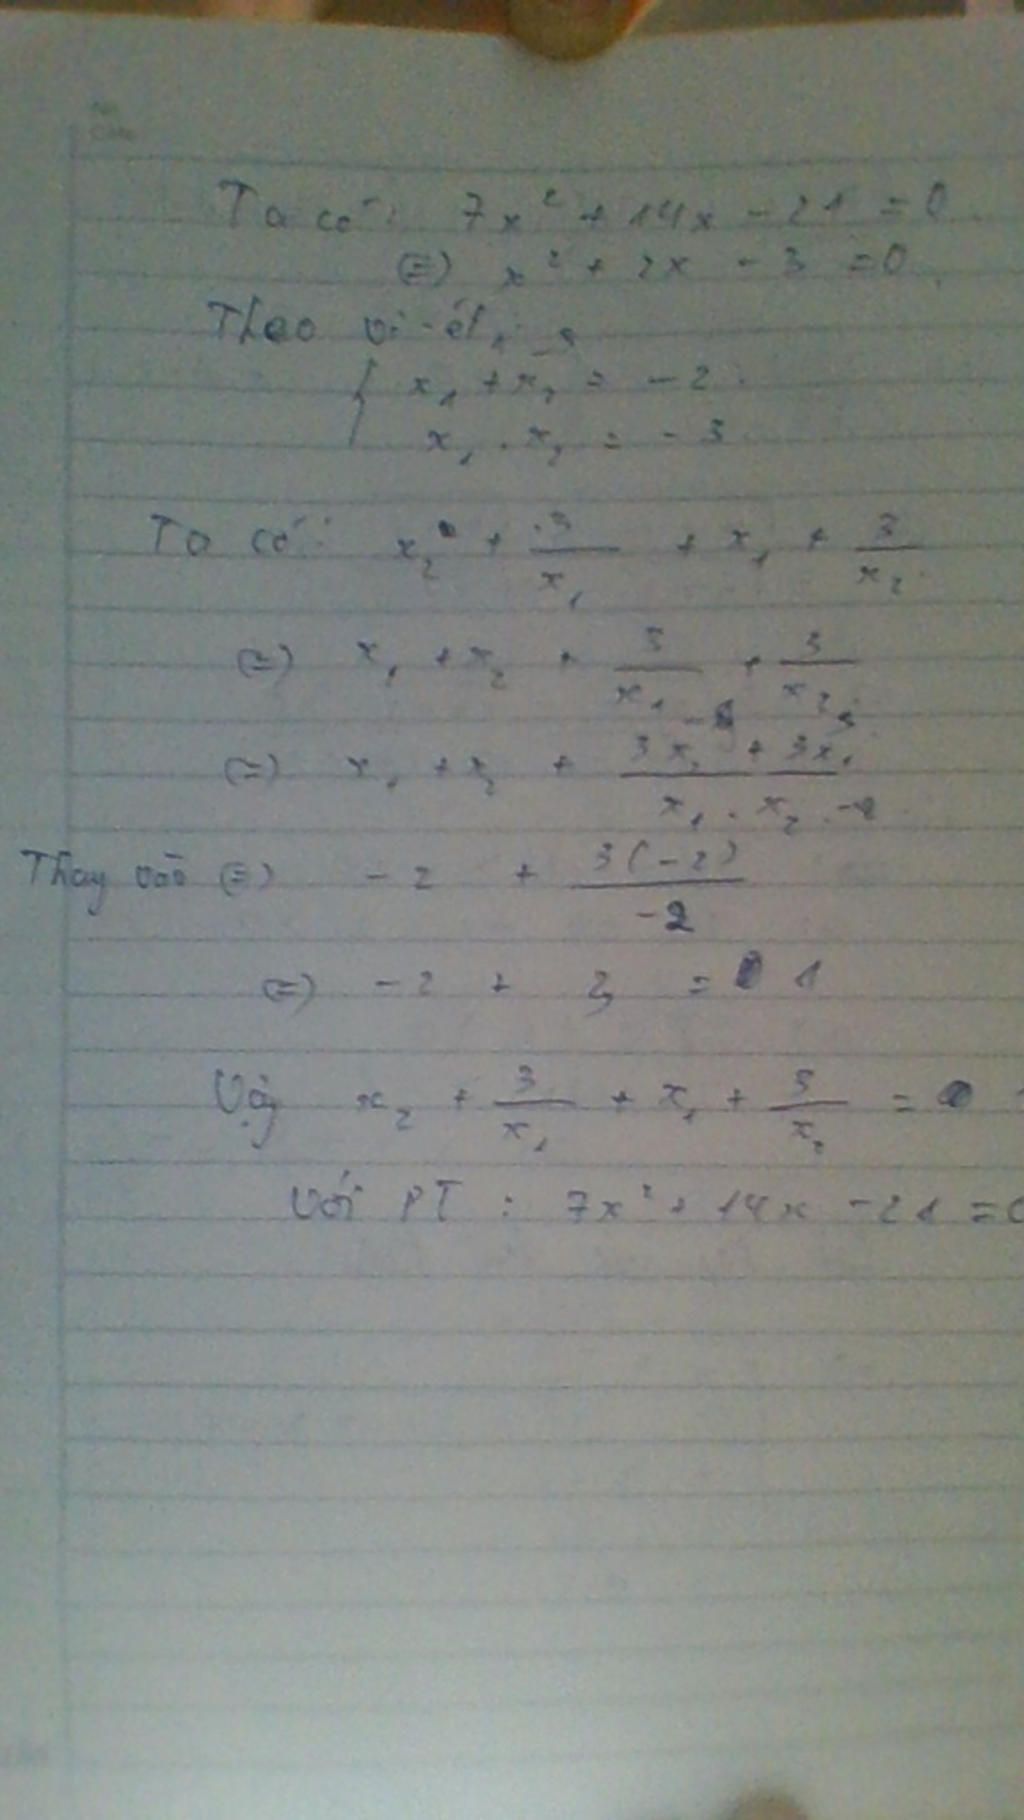 Ta có: 7x² + 14x - 21 = 0
(=) x² + 2x - 3 = 0
Theo vi-ét
x₁ + x₂ = -2
x₁ . x₂ = -3
Ta có: x₂ + 3/x₁ + x₁ + 3/x₂
(=) x₁ + x₂ + 3/x₁ + 3/x₂
(=) x₁ + x₂ + (3x₂ + 3x₁)/(x₁ . x₂)
Thay vào (=) -2 + 3(-2)/-2
(=) -2 + 3 = 1
Vậy x₂ + 3/x₁ + x₁ + 3/x₂ =
Với PT : 7x² + 14x - 21 = 0